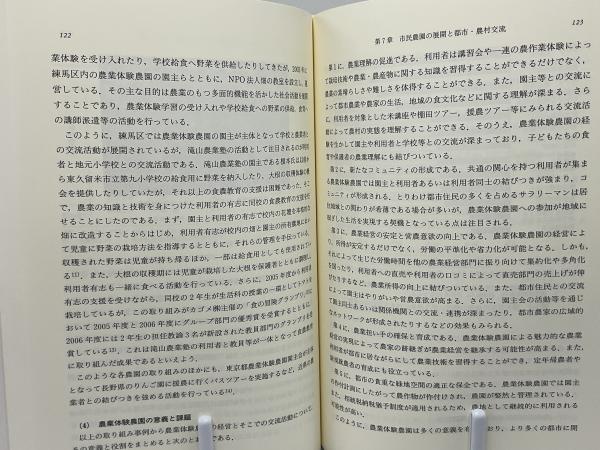 122
業体験を受け入れたり，学校給食へ野菜を供給したりしてきたが，2005年に
練馬区内の農業体験農園の園主らとともに，NPO法人畑の教室を設立し，運
営している．その主な目的は農業のもつ多面的機能を活かした社会活動を展開
することであり，農業体験学習の受け入れや学校給食への野菜の供給，食育へ
の講師派遣等の活動を行っている．
このように，練馬区では農業体験農園の園主が主体となって学校と農業者と
の交流活動が展開されているが，滝山農業塾の活動として注目されるのが利用
者と地元小学校との交流活動である．滝山農業塾の園主である榎本氏は以前か
ら東久留米市立第九小学校の給食用に野菜を納入したり，大根の収穫体験の機
会を提供したりしていたが，それ以上の食農教育の支援は困難であった．そこ
で，農業の知識と技術を身につけた利用者の有志に同校の食農教育の支援を任
せることにしたのである．まず，園主と利用者の有志で校内の花壇を本格的な
畑に改造することからはじめ，利用者有志が校内の畑と園主の所有圃場におい
て児童に野菜の栽培方法を指導するとともに，それらの管理を手伝っている．
収穫された野菜は児童が持ち帰るほか，一部は給食用としても使用されてい
る．また，大根の収穫期には児童が栽培した大根を保護者とともに調理し，
利用者有志も一緒に食べる活動を行っている．さらに，2005年度から利用者
有志の支援を受けながら，同校の2年生が生活科の授業の一環としてトマトを
栽培しているが，この取り組みがカゴメ㈱主催の「食の冒険グランプリ」にお
いて2005年度と2006年度にグループ部門の優秀賞を受賞するとともに，
2006年度には2年生の担任教諭3名が新設された教員部門のグランプリを受
賞している．これは滝山農業塾の利用者と教員等が一体となって食農教育
に取り組んだ成果であるといえよう．
このような各農園の取り組みのほかにも，東京都農業体験農園園主会が主体
となって長野県のりんご園に援農に行くバスツアーを実施するなど，
業者との結びつきを強める活動も行っている．
(4) 農業体験農園の意義と課題
以上の取り組み事例から農業体験農園の経営とそこでの交流活動について，
その意義と役割をまとめると次のとおりである．
第7章 市民農園の展開と都市・農村交流
123
第1に，農業理解の促進である．利用者は講習会や一連の農作業体験によっ
て栽培技術や農業・農産物に関する知識を習得することができるだけでなく，
農業の素晴らしさや難しさを体得することができる．また，園主等との交流に
よって都市農業や農家の生活，地域の食文化などに関する理解が深まる．さら
に，利用者を対象とした米講座や棚田ツアー，援農ツアー等にみられる交流活
動によって農村の実態を理解することができる．そのうえ，農業体験農園の経
営を活かして園主と利用者と学校等との交流が深まっており，子どもたちの食
育や保護者の農業理解にも結びついている．
第2に，新たなコミュニティの形成である．共通の関心を持つ利用者が集ま
る農業体験農園では園主と利用者あるいは利用者同士の結びつきが強まり，コ
ミュニティが形成される．とりわけ都市住民の多くを占めるサラリーマンは居
住地域との関わりが希薄である場合が多いが，農業体験農園への参加が地域に
根ざした生活を実現する契機となっている点は注目される．
第3に，農業経営の安定と営農意欲の向上である．農業体験農園の経営によ
り，所得が安定するだけでなく，労働の平準化や省力化が可能となる．しかも，
それによって生じた労働時間を他の農業経営部門に振り向けて集約化や多角化
を図ったり，利用者への直売や利用者の口コミによって直売部門の売上げが伸
びたりするなど，農業所得の向上に結びついている．また，都市住民との交流
によって園主はやりがいや営農意欲が高まる．さらに，園主会の活動等を通じ
て園主同士あるいは関係機関との交流・連携が深まったり，都市農家の広域的
なネットワークが形成されたりするなどの効果もみられる．
第4に，農業担い手の確保と育成である．農業体験農園による魅力的な農業
経営の実現によって農家の跡継ぎが農業経営を継承する可能性が高まる．また，
利用者が都市に居ながらにして農業技術を習得することができ，定年帰農者や
第5に，都市の貴重な緑地空間の適正な保全である．農業体験農園では園主
の作付計画にしたがって農作物が作付けされ，農園が整然と管理されている．
また，相続税納税猶予制度が適用されるため，農地として継続的に利用される
可能性が高い．
このように，農業体験農園は多くの意義を有しており，より多くの都市に開